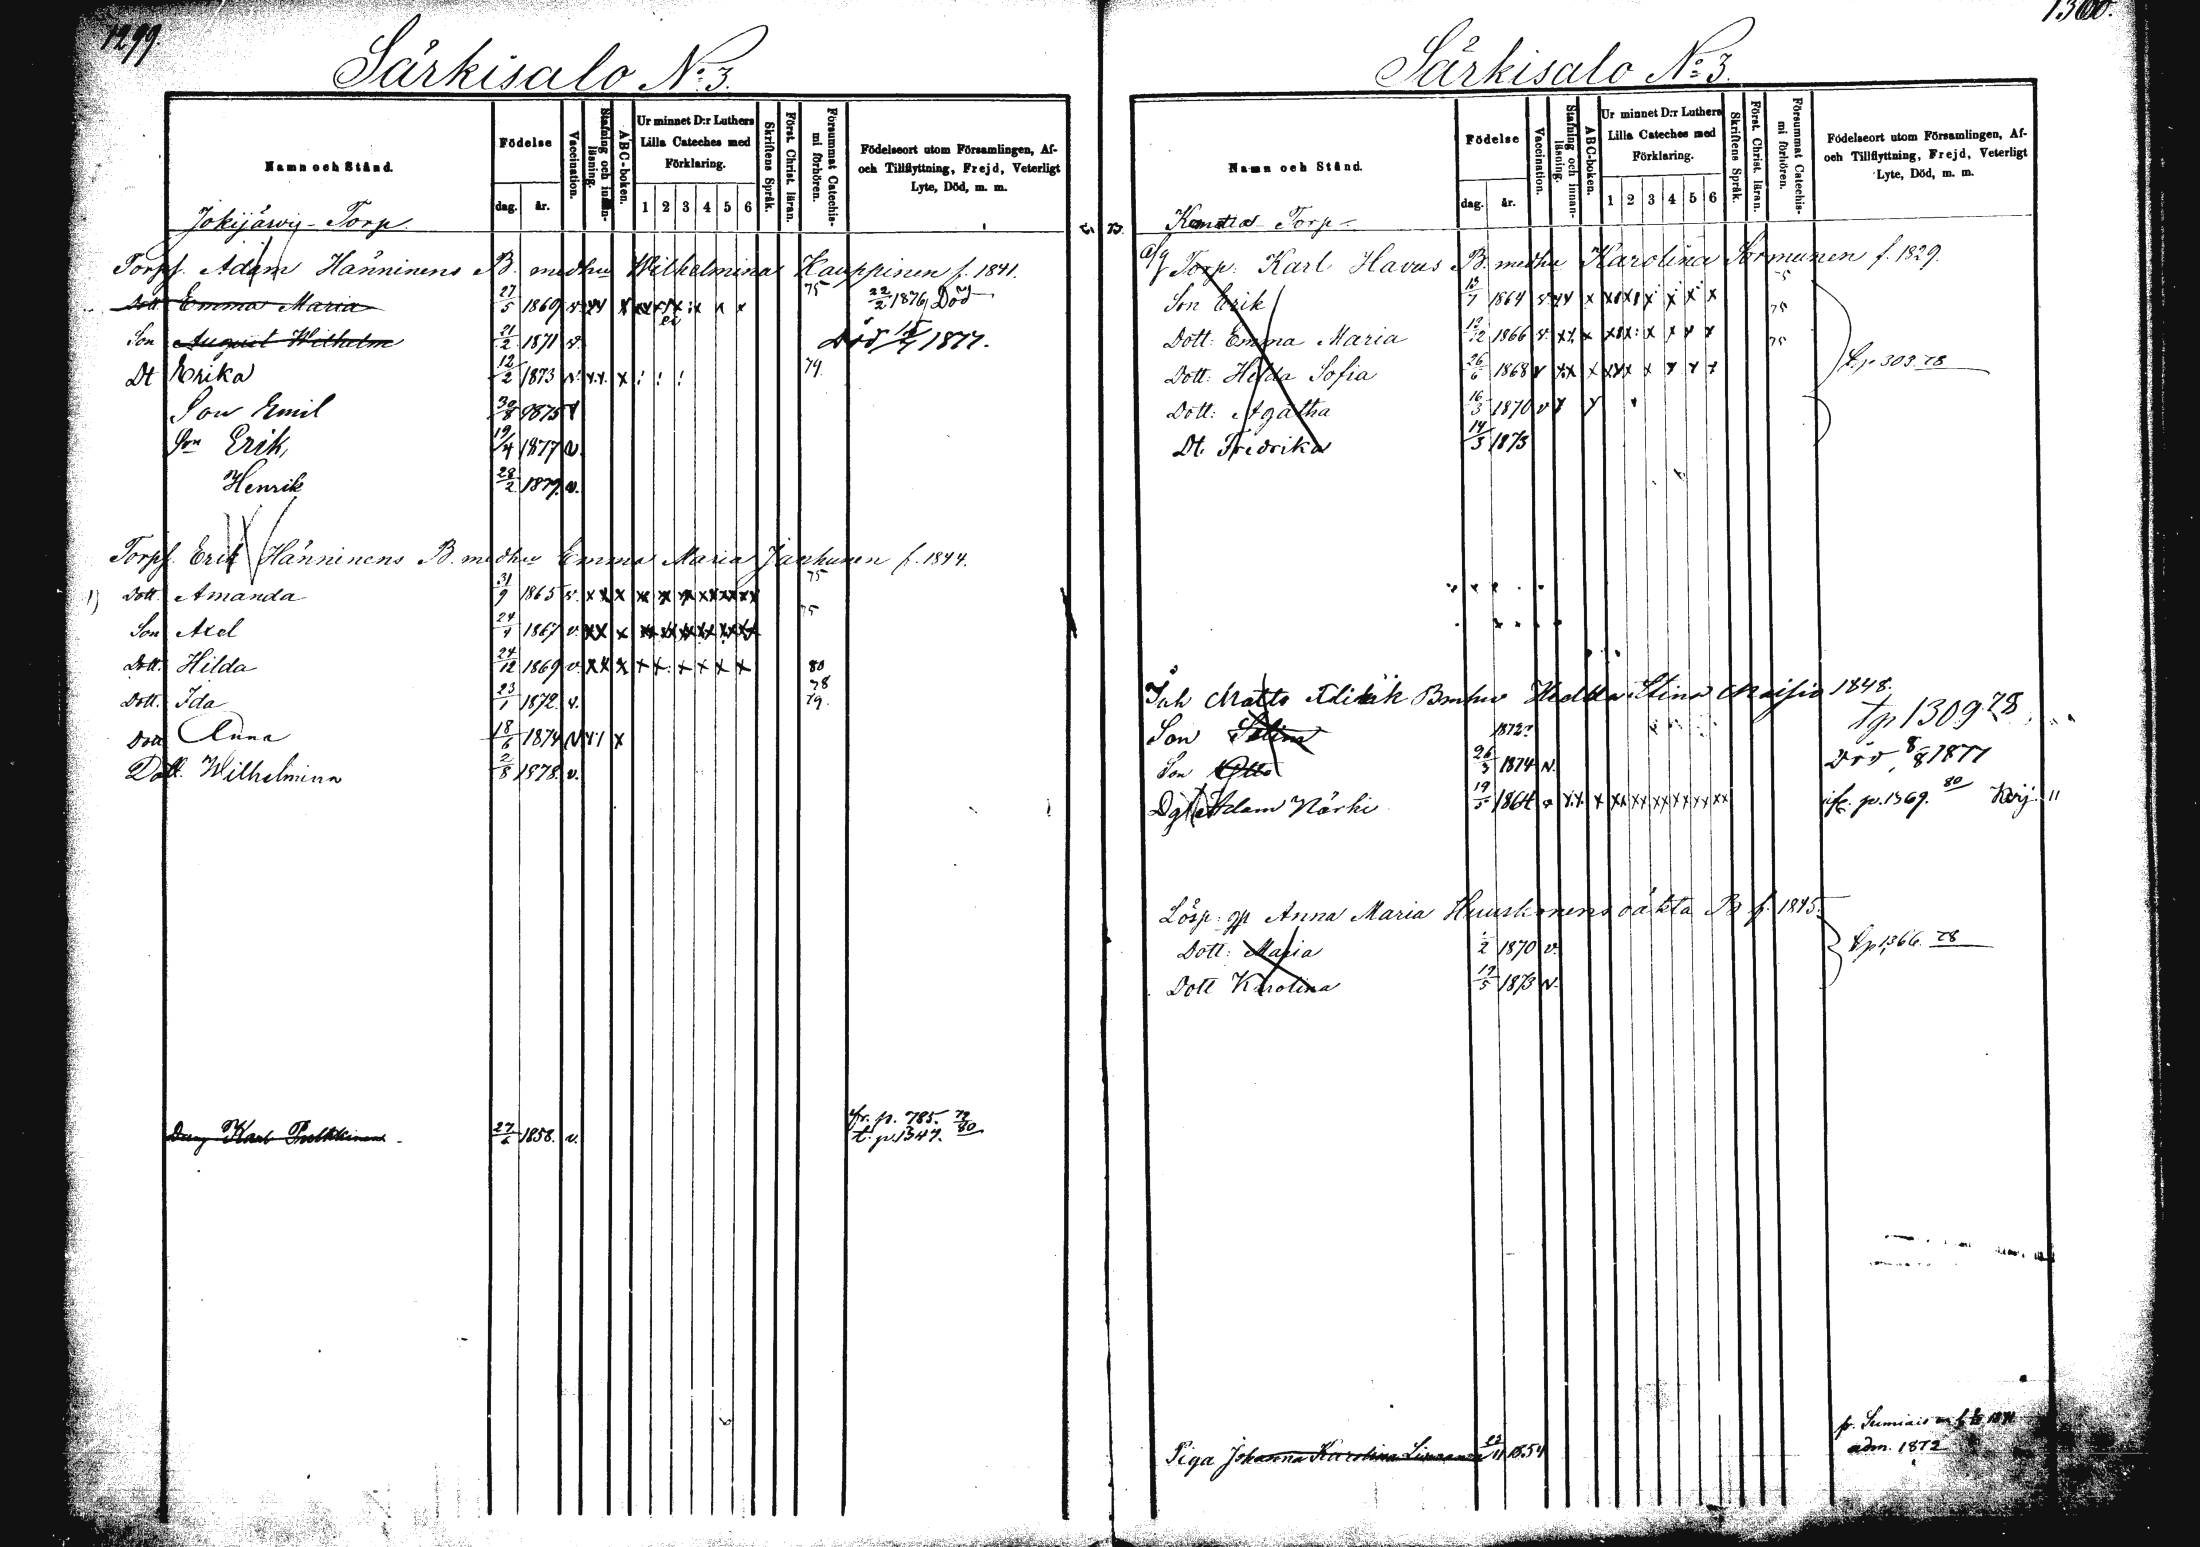 1299.
Särkisalo No 3.
Namn och Stånd.
Födelse
dag. år.
Vaccination.
Stafning och innan-läsning.
ABC-boken.
Ur minnet D:r Luthers Lilla Cateches med Förklaring.
1 2 3 4 5 6
Skriftens Språk.
Först. Christ. läran.
Försummat Catechismi förhören.
Födelseort utom Församlingen, Af- och Tillflyttning, Frejd, Veterligt Lyte, Död, m. m.
Jokijärvi - Torp.
Torpf. Adam Hänninens B. medhu Wilhelmina Kauppinen f. 1841.
Dott. Emma Maria 27/5 1869 v. 75 22/2 1876 Död
Son August Wilhelm 21/2 1871 v. Död 1877.
Dt Erika 12/2 1873 v. x x x ! ! ! 79.
Son Emil 30/8 1875 v
Son Erik, 19/4 1877 v.
Henrik 28/2 1879. v.
Torpf. Erik Hänninens B. medhu Emma Maria Janhunen f. 1844.
Dott. Amanda 31/9 1865 v. 75
Son Axel 24/4 1867 v. 75
Dott. Hilda 24/12 1869 v. x x x x x x x x x 80
Dott. Ida 23/1 1872 v. 78 79.
Dott Anna 18/6 1874 v
Dott. Wilhelmina 2/8 1878. v.
Dreng Karl Pulkkinen 27/6 1858. v. fr. p. 785. 79
t. p. 1347. 80
1300.
Särkisalo No 3.
Namn och Stånd.
Födelse
dag. år.
Vaccination.
Stafning och innan-läsning.
ABC-boken.
Ur minnet D:r Luthers Lilla Cateches med Förklaring.
1 2 3 4 5 6
Skriftens Språk.
Först. Christ. läran.
Försummat Catechismi förhören.
Födelseort utom Församlingen, Af- och Tillflyttning, Frejd, Veterligt Lyte, Död, m. m.
Torp
Torp. Karl Havus B. medhu Karolina Sormunen f. 1829.
Son Erik 13/7 1864 v. 75
Dott: Emma Maria 12/12 1866 v. 75
Dott: Hilda Sofia 26/6 1868 v t. p. 303. 78
Dott: Agatha 16/3 1870 v
Dt. Fredrika 14/3 1873
Inh Matts Bmhu Hedda Stina 1848.
Tp 1309 78
Son 1872
Son Otto 26/3 1874 v. Död 8/8 1877
Dg Adam Närhi 19/5 1864 v p. 1369. 80
Lösp: gp Anna Maria Huuskonens oäkta B f. 1845.
Dott: Maria 1/2 1870 v. t. p. 1366. 78
Dott Karolina 19/5 1873 v.
Piga Johanna Karolina 23/11 1854 fr. Sumiais
adm. 1872